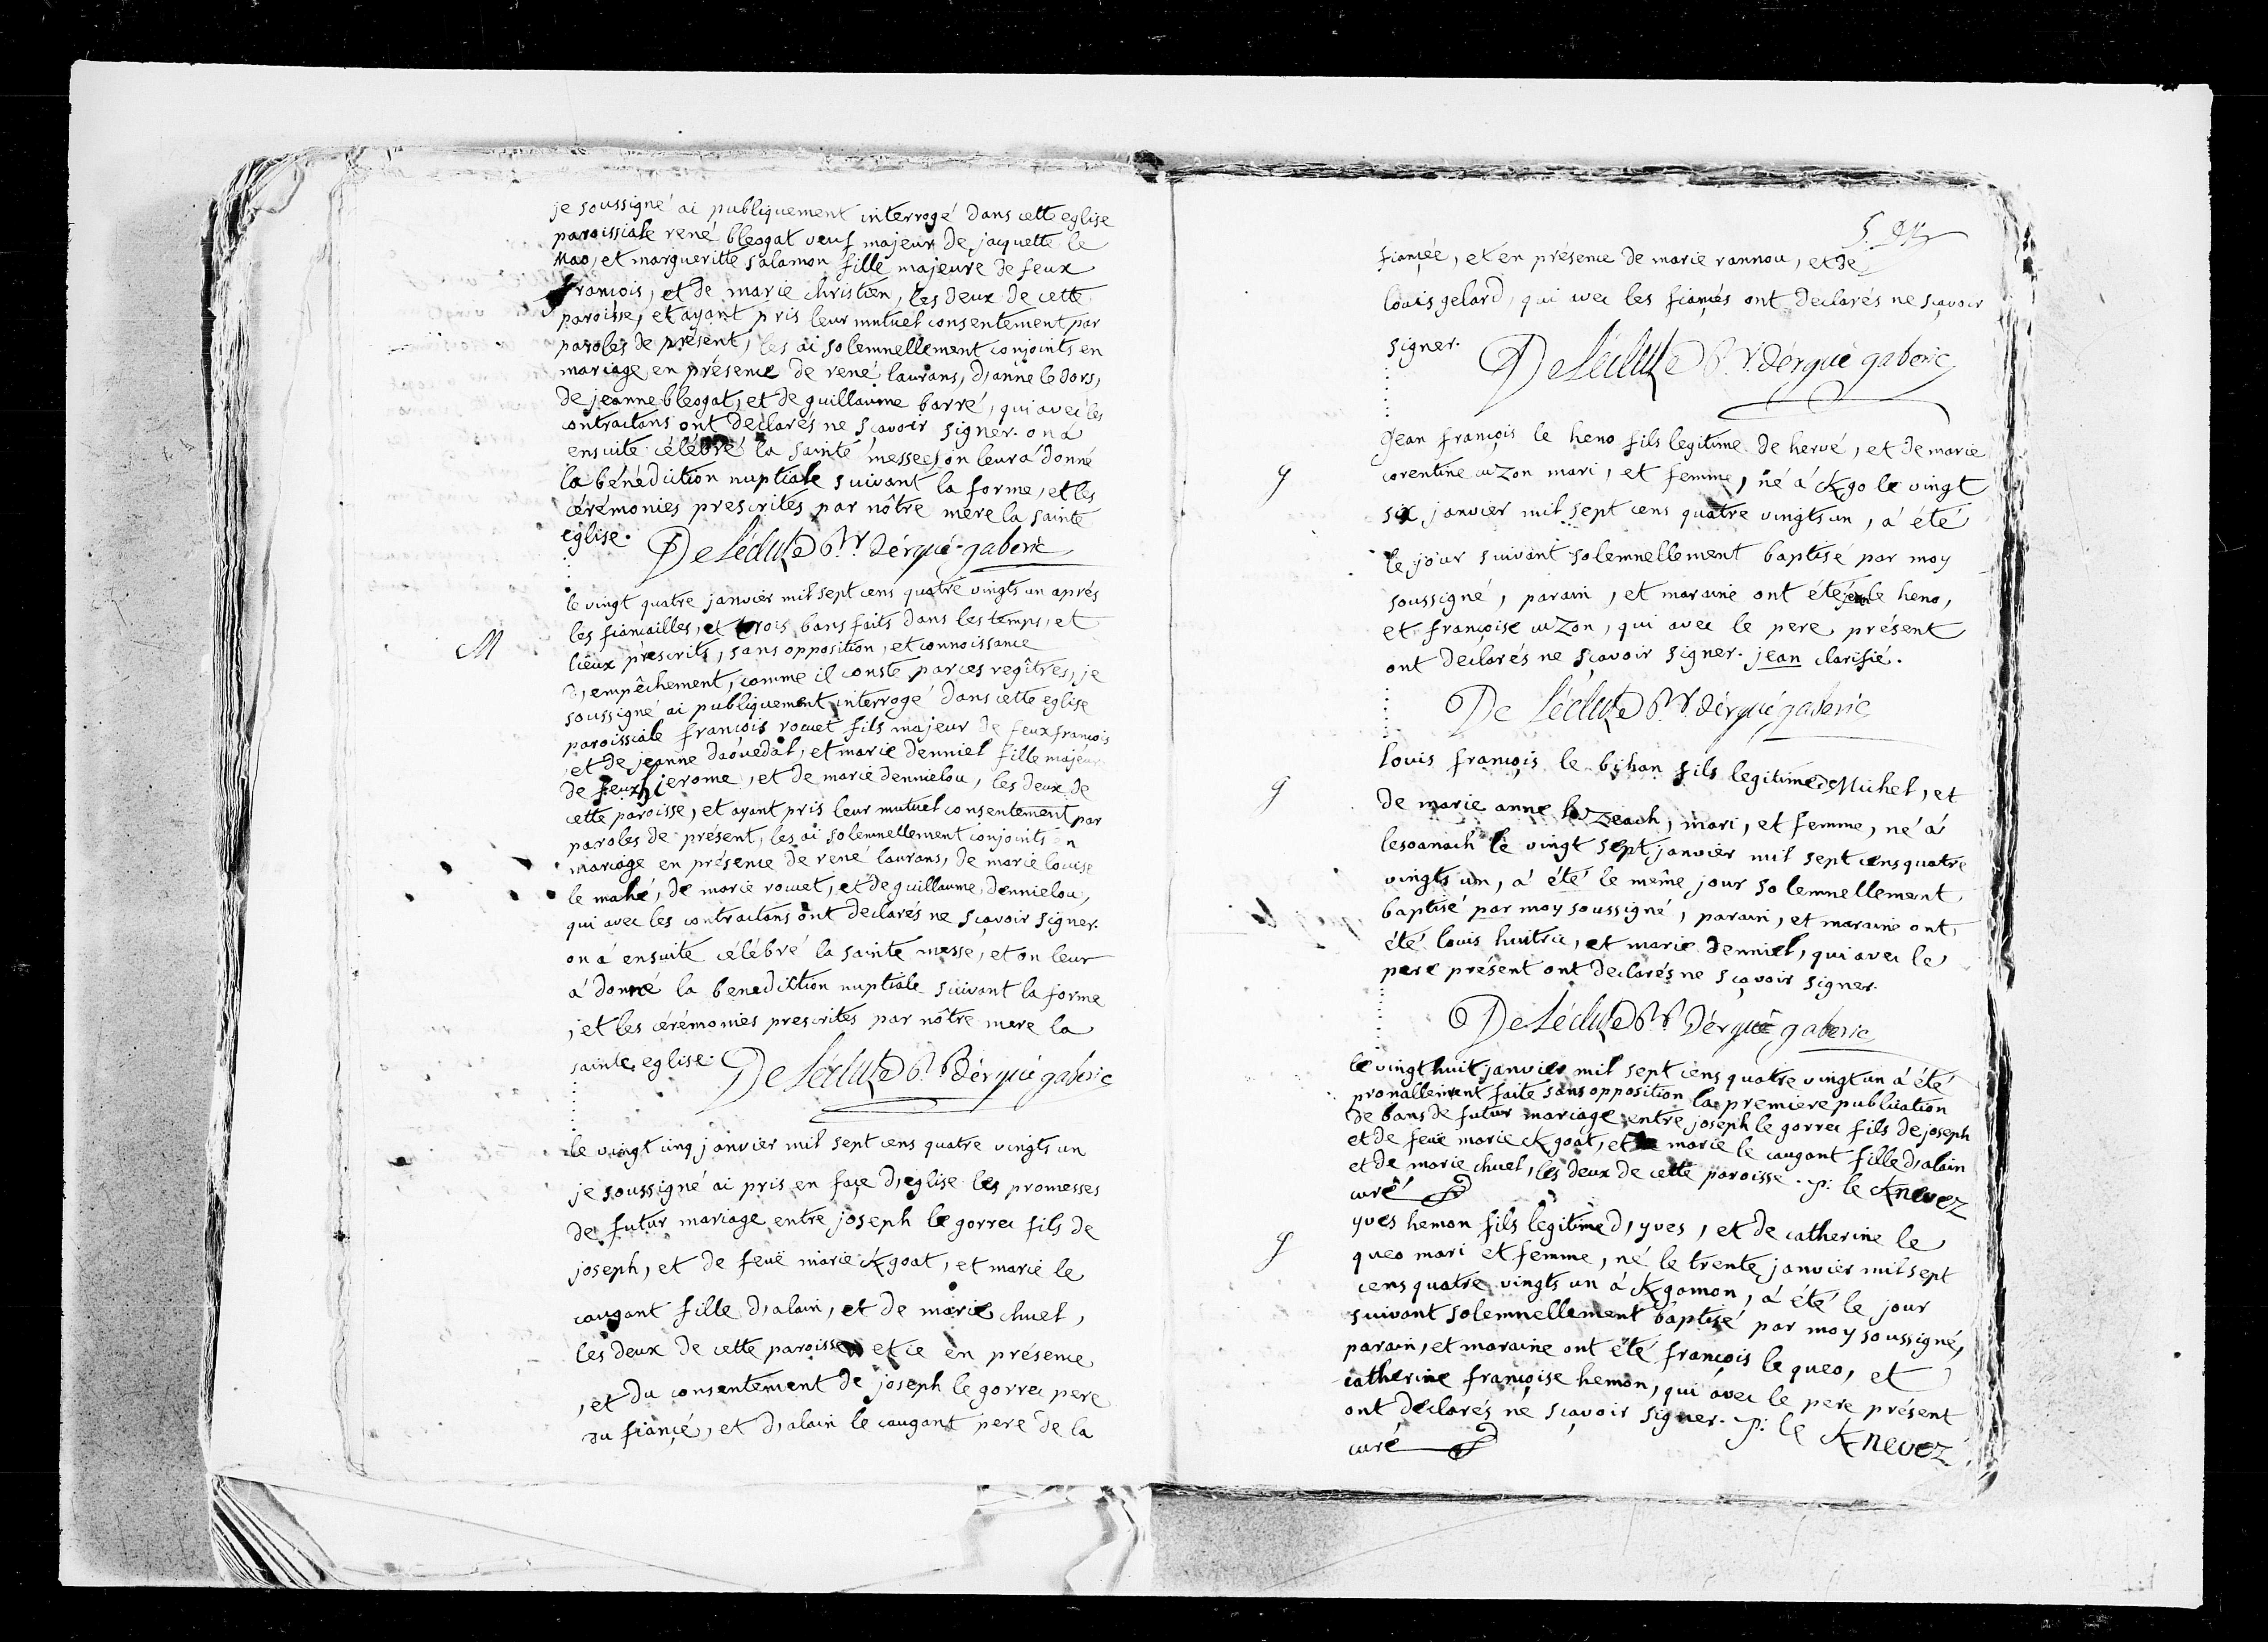 je soussigné ai publiquement interrogé dans cette eglise
paroissiale rené bleogat veuf majeur de jaquette le
Mao, et margueritte salamon fille majeure de feux
françois, et de marie christien, les deux de cette
paroisse, et ayant pris leur mutuel consentement par
paroles de présent, les ai solemnellement conjoints en
mariage en présence de rené laurans, d,anne le dors,
de jeanne bleogat, et de guillaume barré, qui avec les
contractans ont declarés ne sçavoir signer. on a
ensuite célébré la sainte messe, on leur a donné
la bénédiction nuptiale suivant la forme, et les
cérémonies prescrites par nôtre mere la sainte
église. De Lécluze Rr. d'érgué-gaberic
le vingt quatre janvier mil sept cens quatre vingts un aprés
les fiançailles, et trois bans faits dans les temps, et
M
lieux prescrits, sans opposition, et connoissance
d, empêchement, comme il conste par ces regîtres, je
soussigné ai publiquement interrogé dans cette eglise
paroissiale françois rouet fils majeur de feux françois
et de jeanne daouedal, et marie denniel fille majeure
de feux jerome, et de marie dennielou, les deux de
cette paroisse, et ayant pris leur mutuel consentement par
paroles de présent, les ai solemnellement conjoints en
mariage en présence de rené laurans, de marie louise
le mahé, de marie rouet, et de guillaume dennielou,
qui avec les contractans ont declarés ne sçavoir signer.
on á ensuite célébré la sainte messe, et on leur
á donné la benediction nuptiale suivant la forme
, et les cérémonies prescrites par nôtre mere la
sainte eglise. De Lécluze Rr. d'érgué gaberic
le vingt cinq janvier mil sept cens quatre vingts un
je soussigné ai pris en façe d,eglise les promesses
de futur mariage entre joseph le gorrec fils de
joseph, et de feuë marie Kgoat, et marie le
caugant fille d,alain, et de marie chuel,
les deux de cette paroisse et ce en présence
, et du consentement de joseph le gorrec pere
du fiançé, et d,alain le caugant pere de la
fiançée, et en présence de marie rannou, et de
louis gelard, qui avec les fiançés ont declarés ne sçavoir
signer. De Lécluze Rr. d'érgué gaberic
jean françois le heno fils legitime de hervé, et de marie
corentine cuzon mari, et femme, né á Kgo le vingt
six janvier mil sept cens quatre vingts un, á été
le jour suivant solemnellement baptisé par moy
soussigné, parain, et maraine ont été jean le heno,
et françoise cuzon, qui avec le pere présent
ont declarés ne sçavoir signer. jean clarifié.
De Lécluze Rr. d'érgué gaberic
louis françois le bihan fils legitime de Michel, et
de marie anne le zeach, mari, et femme, né á
lesoanach le vingt sept janvier mil sept cens quatre
vingts un, á été le même jour solemnellement
baptisé par moy soussigné, parain, et maraine ont
été louis huitric, et marie denniel, qui avec le
pere présent ont declarés ne sçavoir signer.
De Lécluze Rr. d'érgué gaberic
le vingt huit janvier mil sept cens quatre vingt un á été
pronallement faite sans opposition la premiere publication
de bans de futur mariage entre joseph le gorrec fils de joseph
et de feuë marie Kgoat, et de marie le caugant fille d,alain
et de marie chuel, les deux de cette paroisse. p: le Knevez
curé
yves hemon fils legitime d,yves, et de catherine le
queo mari et femme, né le trente janvier mil sept
cens quatre vingts un á Kgamon, á été le jour
suivant solemnellement baptisé par moy soussigné,
parain, et maraine ont été françois le queo, et
catherine françoise hemon, qui avec le pere présent
ont declarés ne sçavoir signer. p: le Knevez
curé